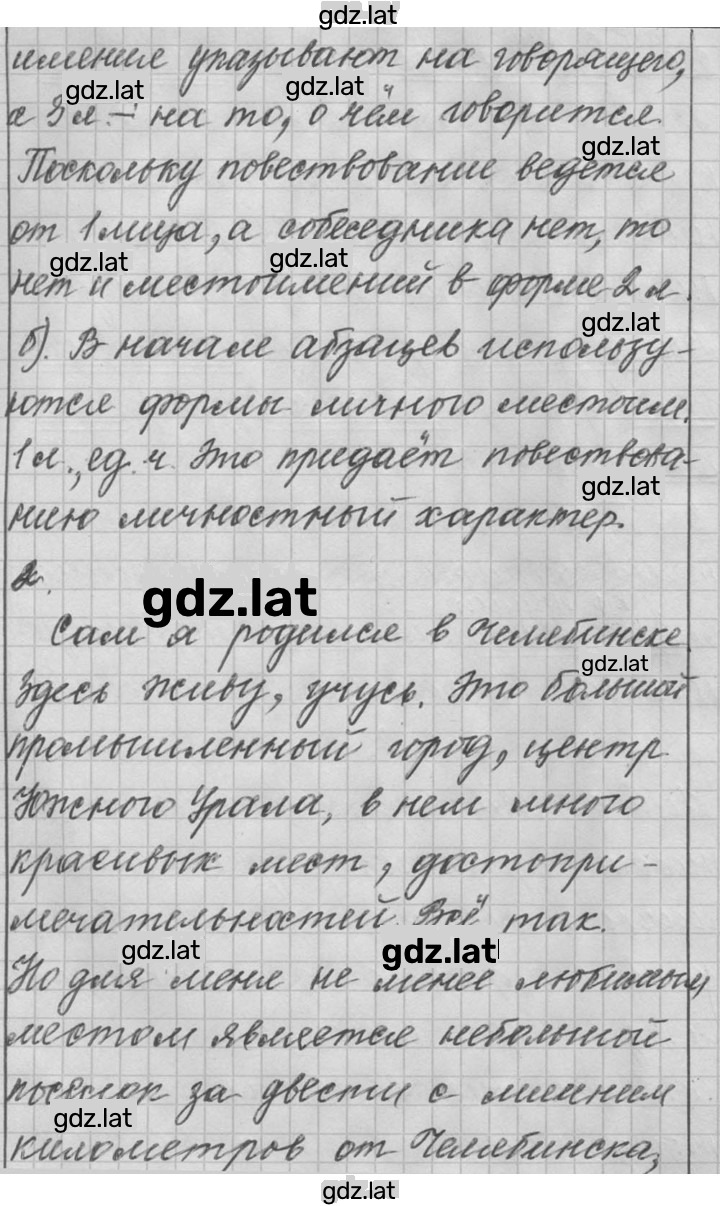 gdz.lat
имения указывают на говорящего,
gdz.lat gdz.lat
а 3 л. – на то, о чём говорится.
gdz.lat
Поскольку повествование ведется
от 1 лица, а собеседника нет, то
gdz.lat gdz.lat
нет и местоимений в форме 2 л.
gdz.lat
б). В начале абзацев использу-
ются формы личного местоим.
1 л., ед. ч. Это придаёт повествова-
gdz.lat
нию личностный характер.
2.
gdz.lat
Сам я родился в Челябинске.
gdz.lat
Здесь живу, учусь. Это большой
промышленный город, центр
Южного Урала, в нем много
красивых мест, достопри-
мечательностей. Всё так.
gdz.lat gdz.lat
Но для меня не менее любимым
местом является небольшой
поселок за двести с лишним
gdz.lat
километров от Челябинска,
gdz.lat